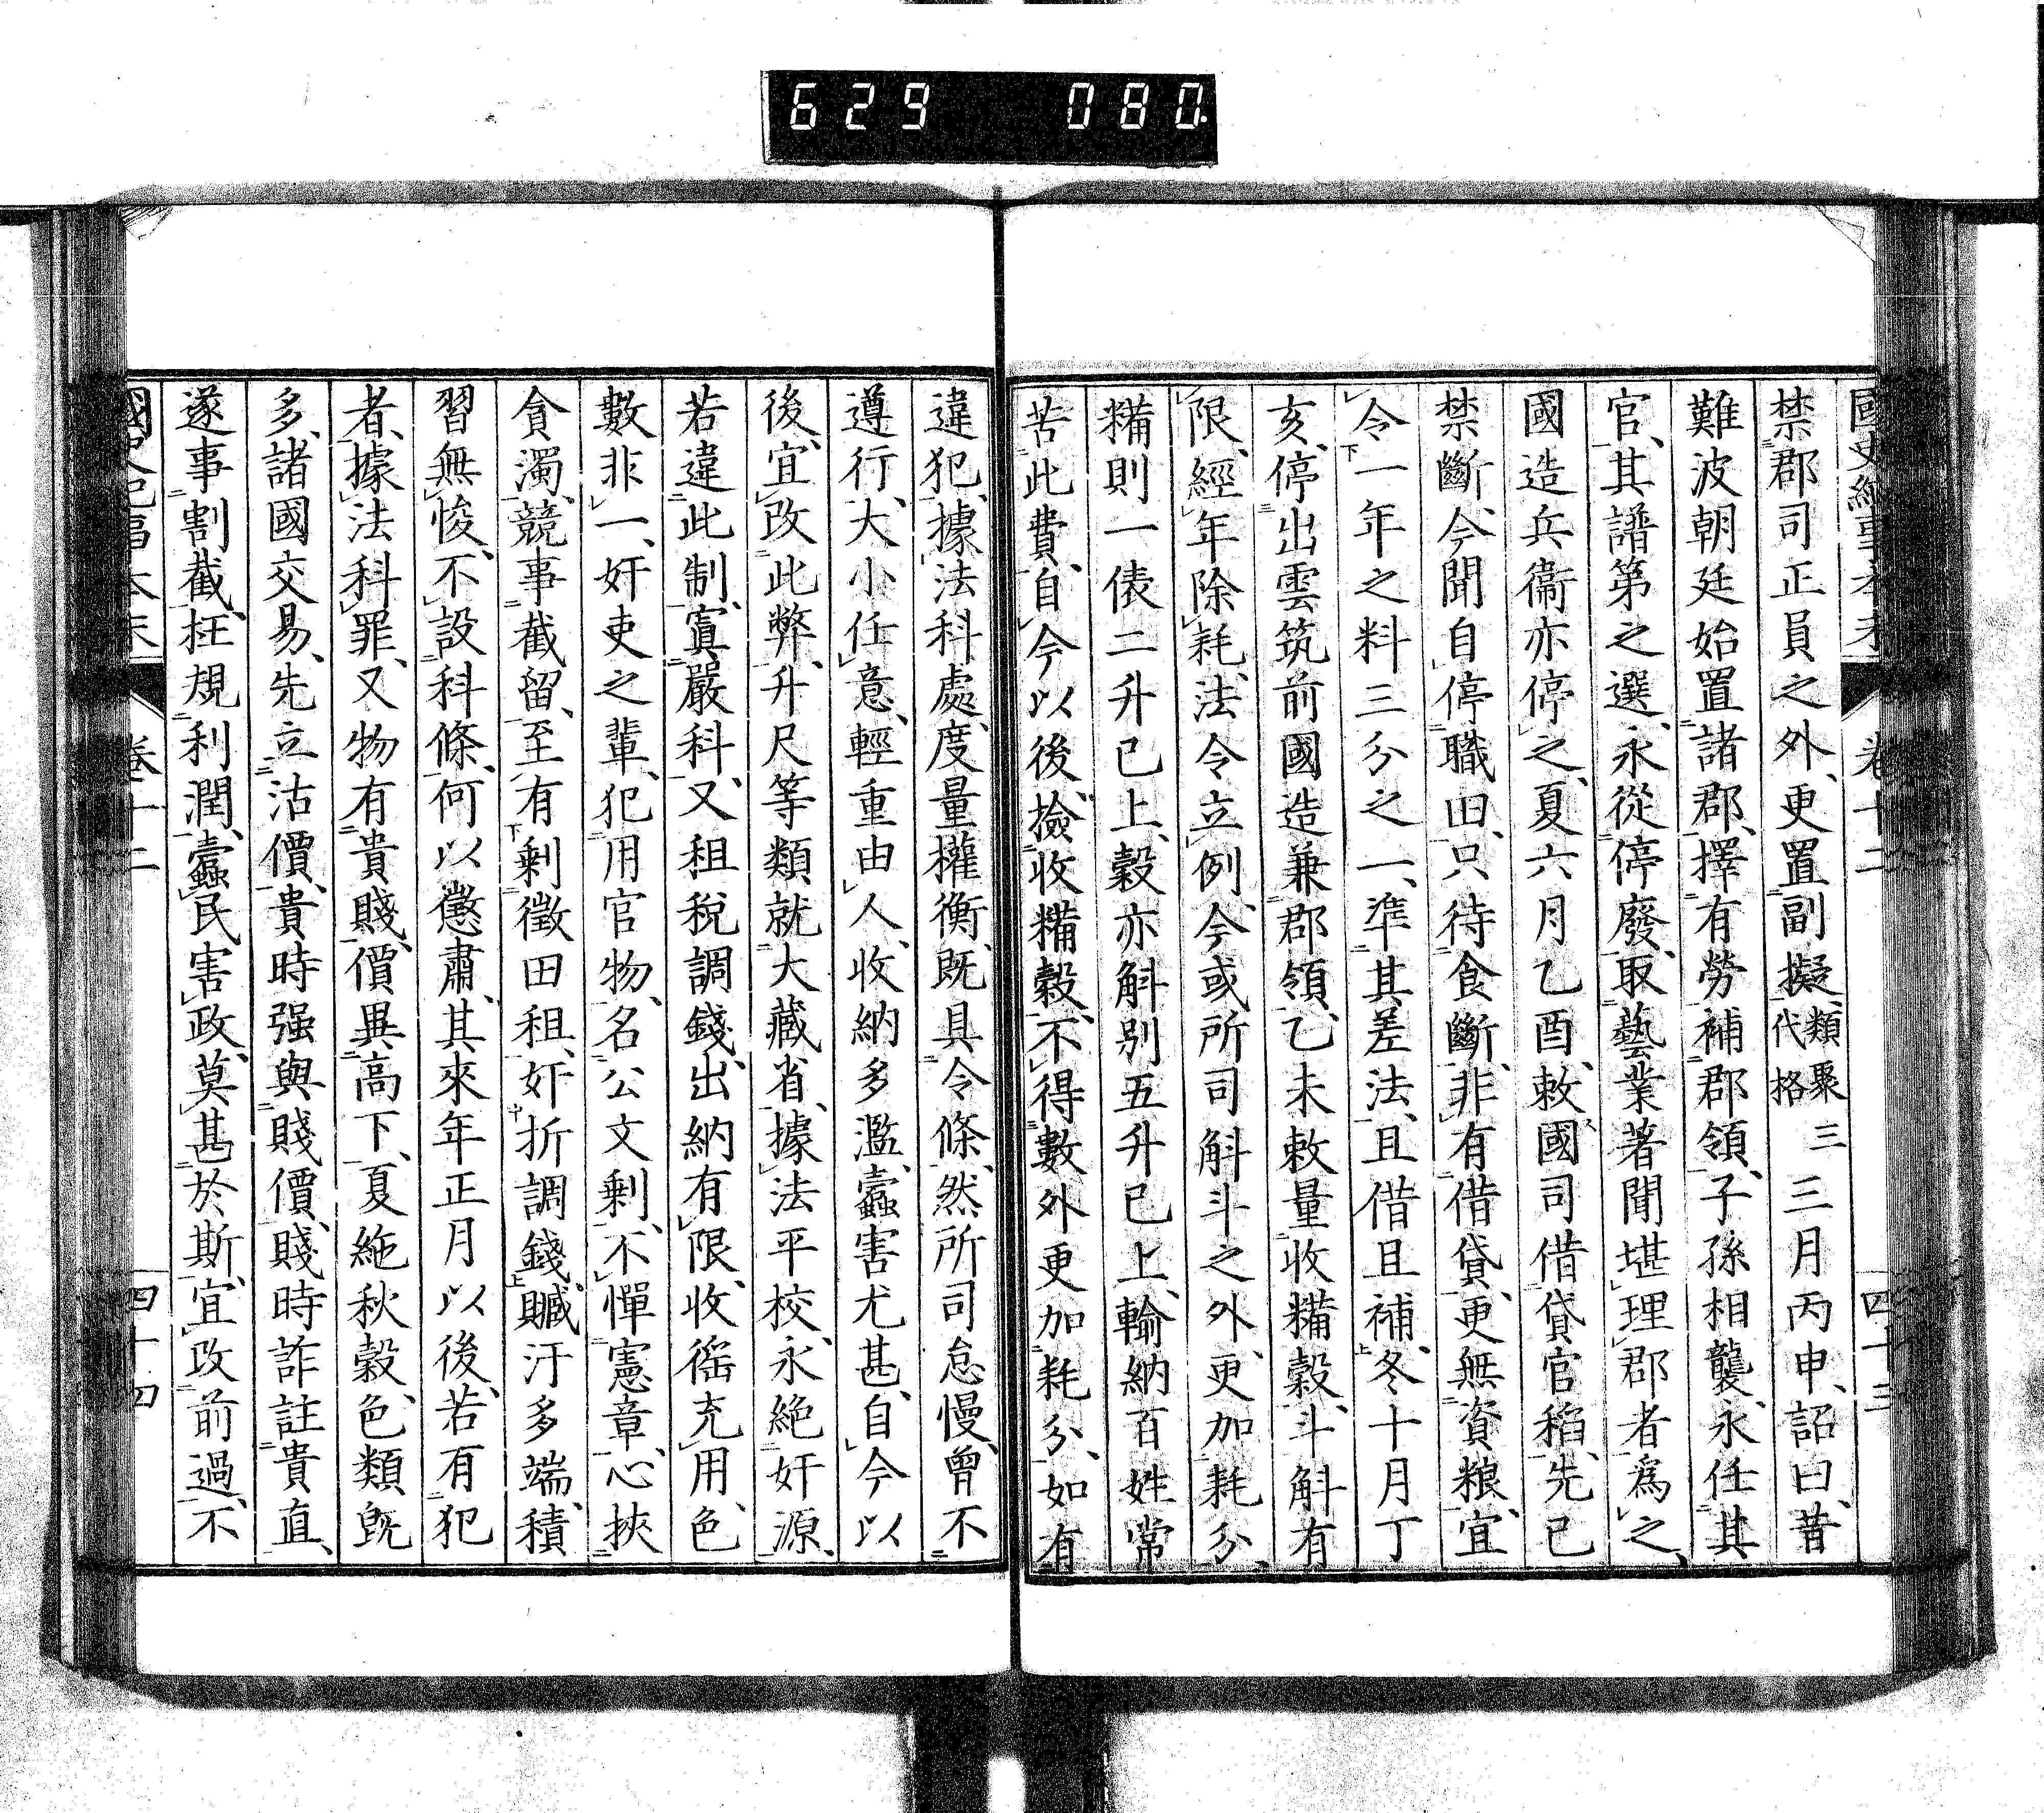 629 080.
國史紀事本末 卷十二 四十三
禁郡司正員之外、更置副擬、類聚三代格 三月丙申、詔曰、昔
難波朝廷始置諸郡、擇有勞補郡領、子孫相襲、永任其
官、其譜第之選、永從停廢、取藝業著聞堪理郡者爲之、
國造兵衞亦停之、夏六月乙酉、敕國司借貸官稻、先已
禁斷、今聞自停職田、只待食斷、非有借貸、更無資粮、宜
令一年之料三分之一、準其差法、且借且補、冬十月丁
亥、停出雲筑前國造兼郡領、乙未敕量收糒穀、斗斛有
限、經年除耗、法令立例、今或所司斛斗之外、更加耗分、
糒則一俵二升已上、穀亦斛别五升已上、輸納百姓常
苦此費、自今以後、撿收糒穀、不得數外更加耗分、如有
違犯、據法科處、度量權衡、既具令條、然所司怠慢、曾不
遵行、大小任意、輕重由人、收納多濫、蠹害尤甚、自今以
後、宜改此弊、升尺等類、就大藏省、據法平校、永絶奸源、
若違此制、寘嚴科、又租税調錢、出納有限、收徭充用、色
數非一、奸吏之輩、犯用官物、名公文剩、不憚憲章、心挾
貪濁、競事截留、至有剩徵田租、奸折調錢、贓汙多端、積
習無悛、不設科條、何以懲肅、其來年正月以後、若有犯
者、據法科罪、又物有貴賤、價異高下、夏絁秋穀、色類既
多、諸國交易、先立沽價、貴時强與賤價、賤時詐註貴直、
遂事割截、枉規利潤、蠹民害政、莫甚於斯、宜改前過、不
國史紀事本末 卷十二 四十四